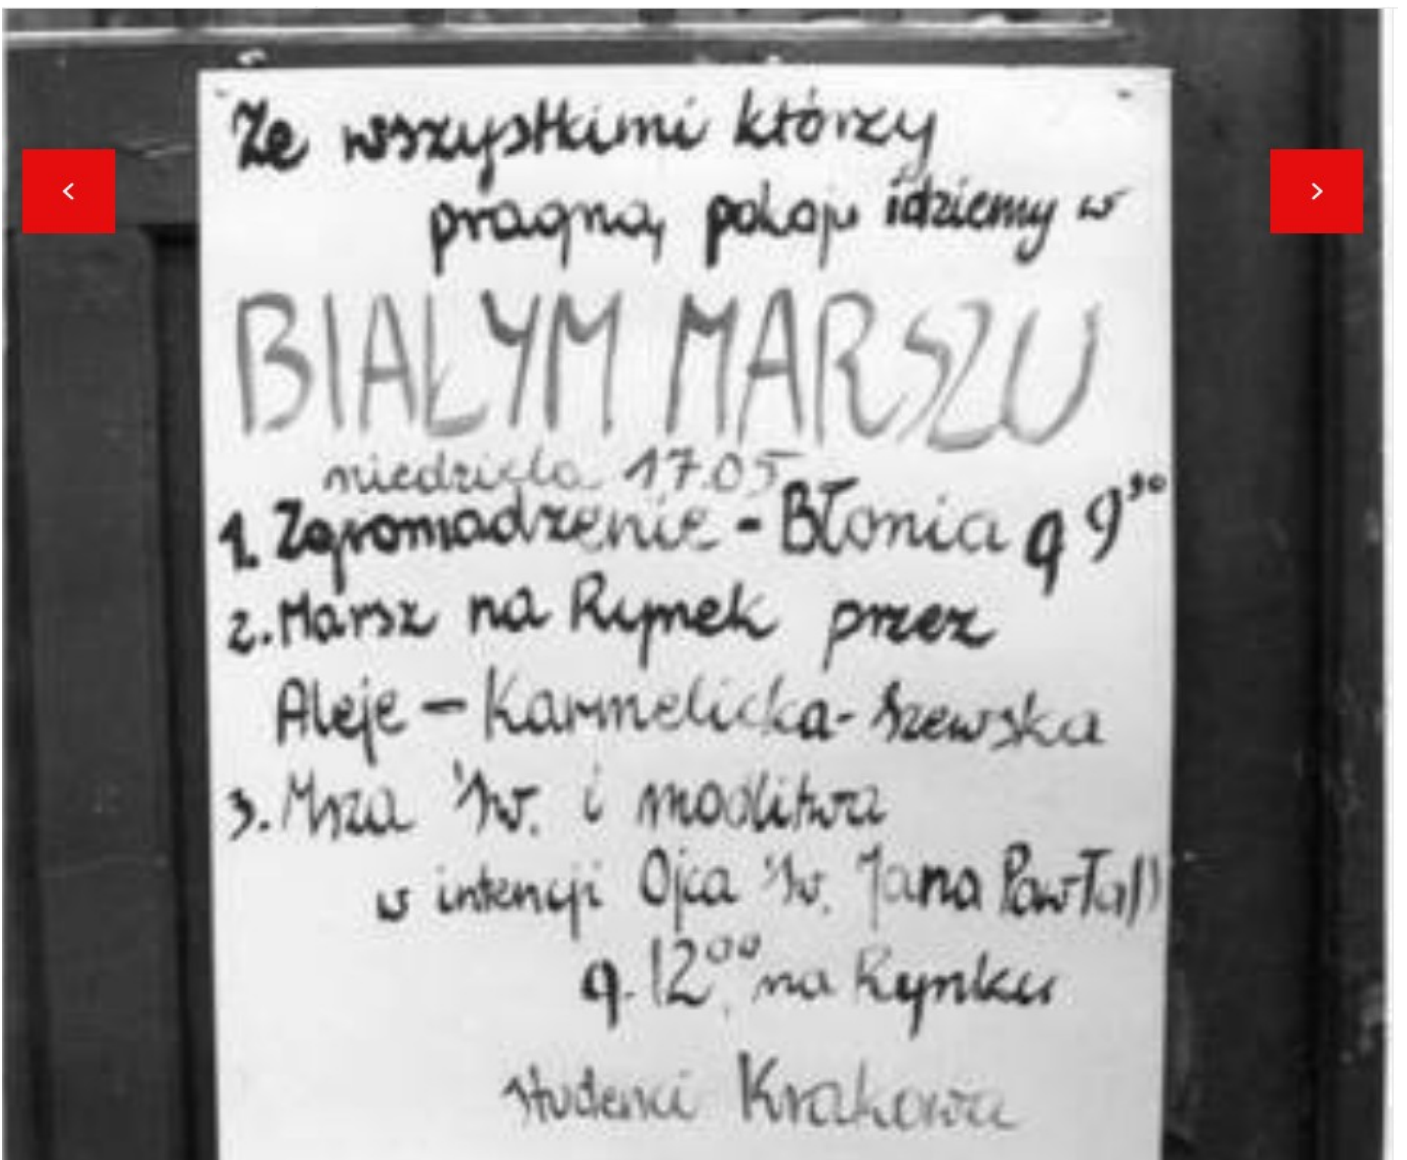 Ze wszystkimi którzy
pragną pokoju idziemy w
BIAŁYM MARSZU
niedziela 17.05
1. Zgromadzenie - Błonia g 9³⁰
2. Marsz na Rynek przez
Aleje - Karmelicka - Szewska
3. Msza św. i modlitwa
w intencji Ojca św. Jana Pawła II
g. 12⁰⁰ na Rynku
studenci Krakowa